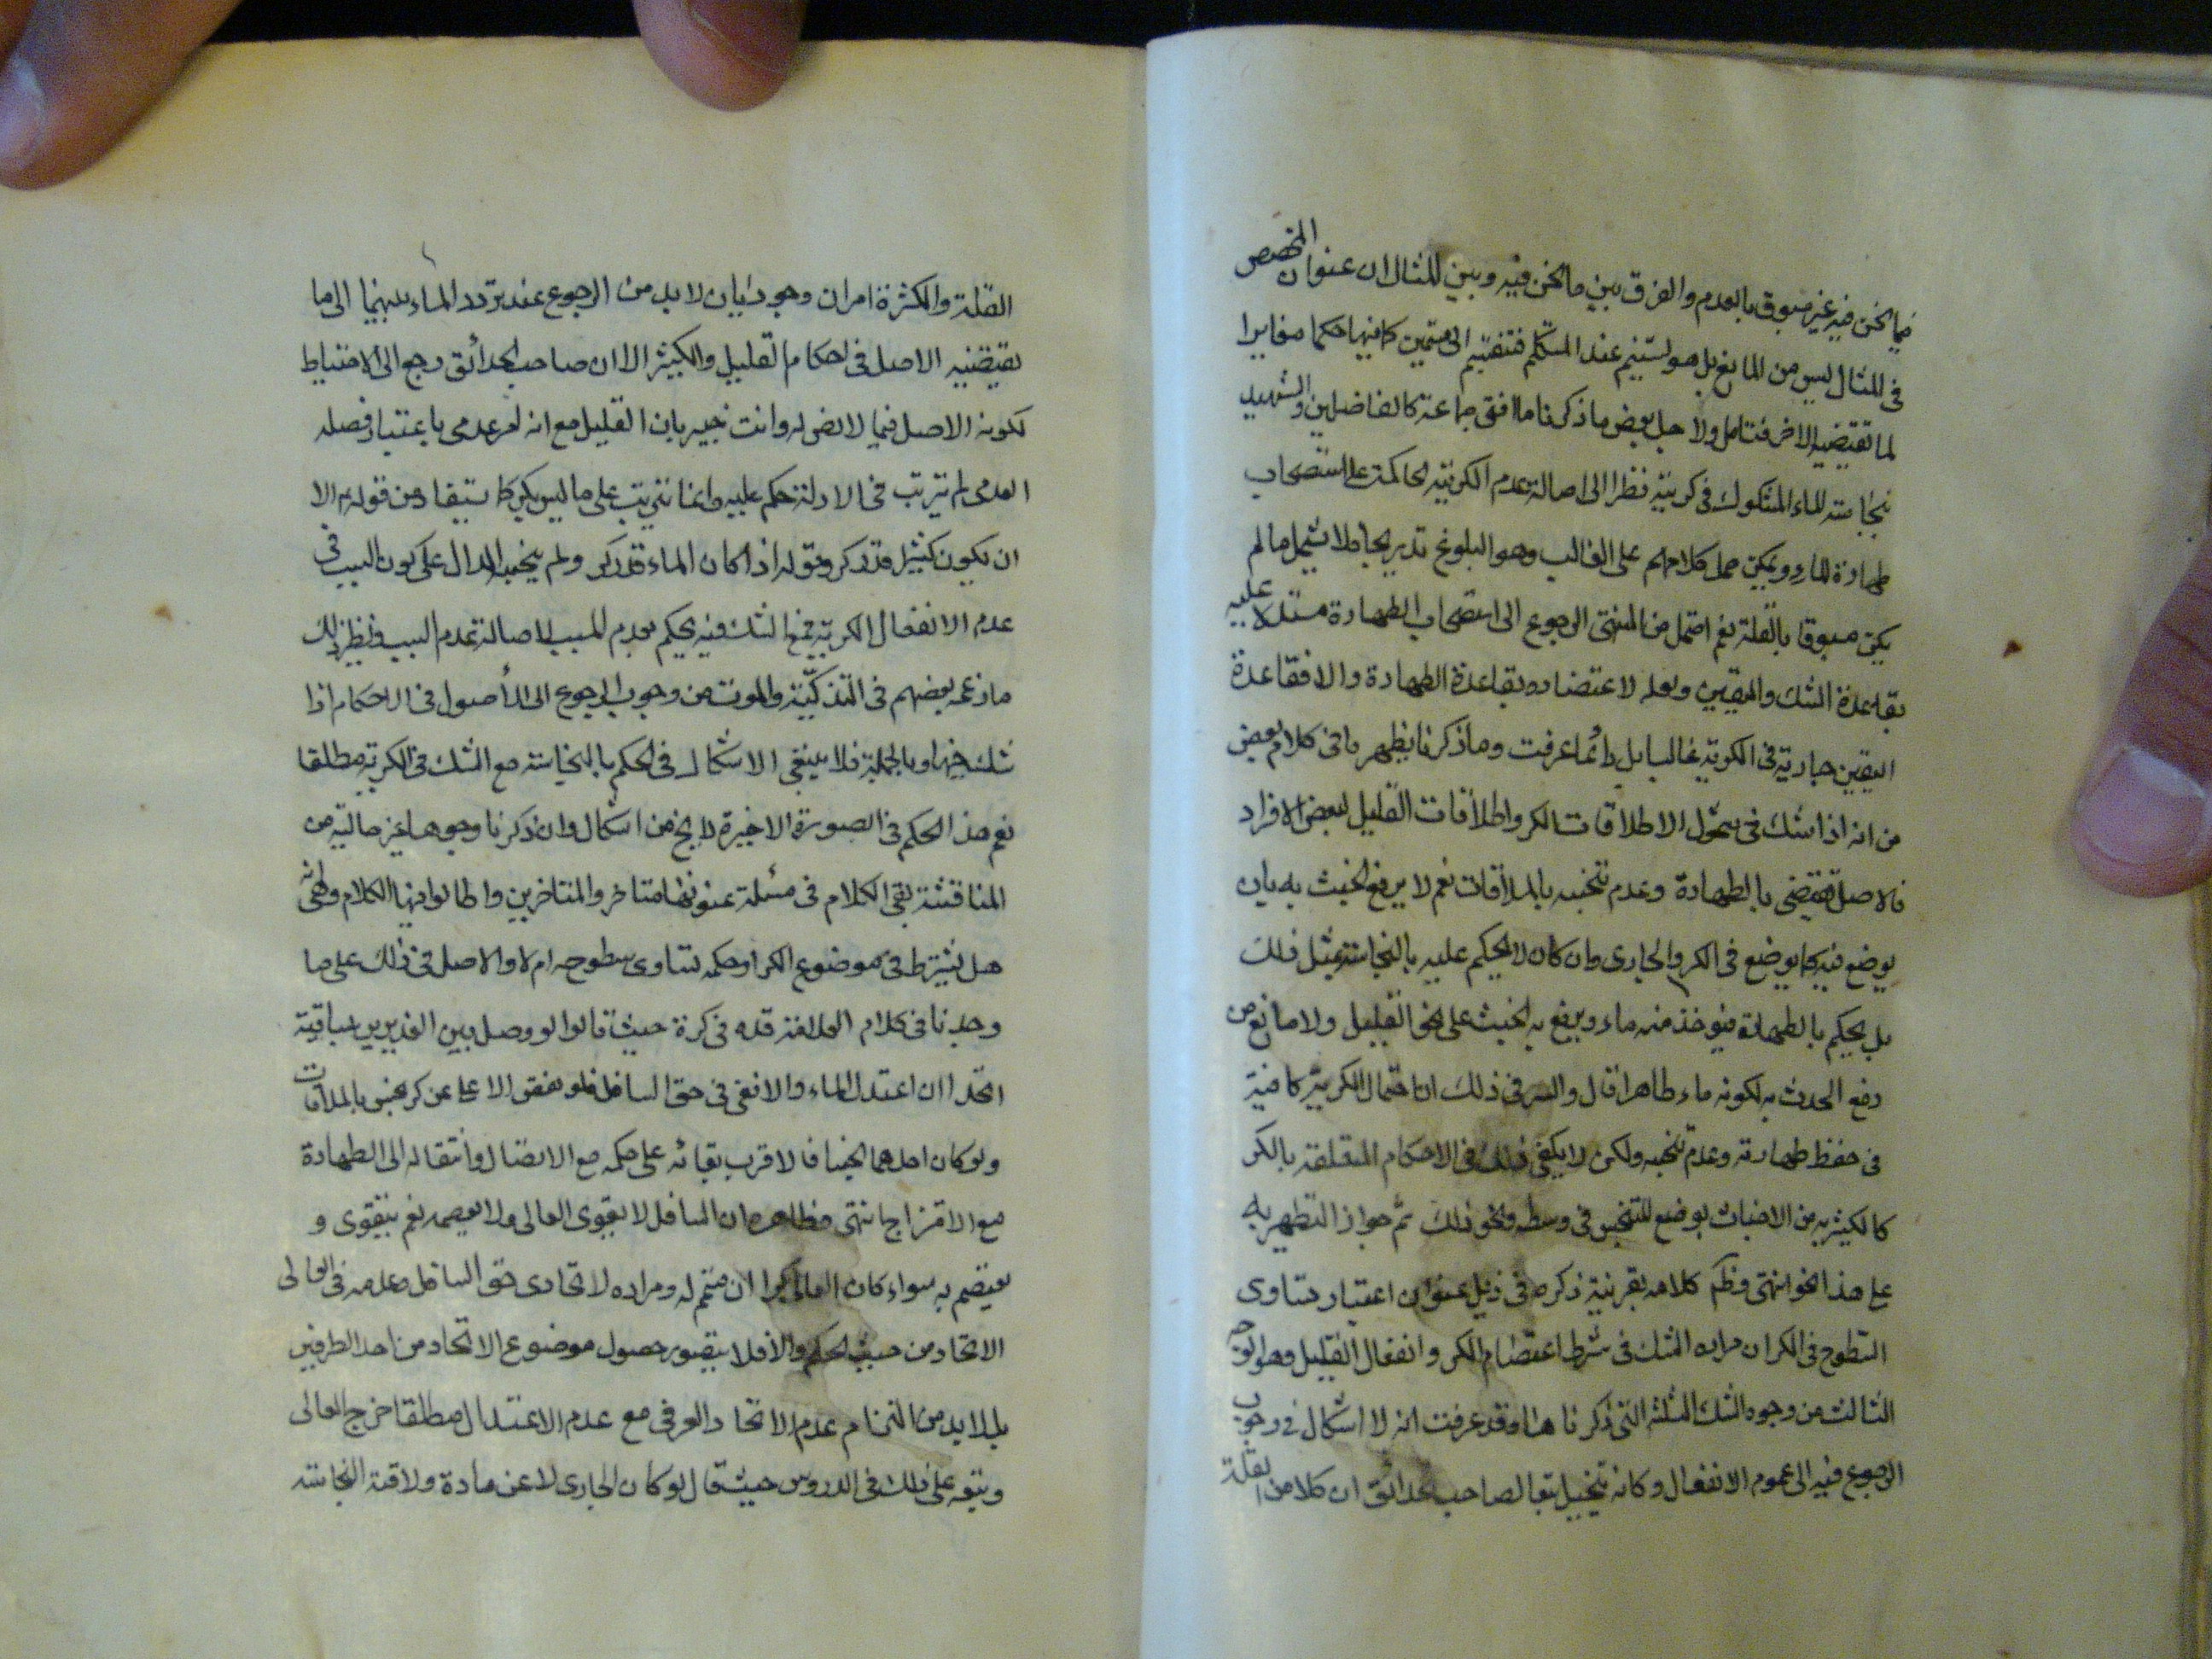 فيما نحن فيه غير مسبوق بالعدم والفرق بين ما نحن فيه وبين المثال ان عنوان المخصص
في المثال ليس من المانع بل هو قسيم عند المتكلم فتقسيم الى قسمين كل منهما حكما مغايرا
لما تقتضيه الاخر فتامل ولاجل بعض ما ذكرنا ما افتى جماعة كالفاضلين والشهيد
بنجاسته للماء المشكوك في كريته نظرا الى اصالة عدم الكرية الحاكمة على استصحاب
طهارة الماء ويمكن حمل كلامهم على الغالب وهو البلوغ تدريجا فلا يشمل ما لم
يكن مسبوقا بالقلة نعم احتمل في المنتهى الرجوع الى استصحاب الطهارة مستدلا عليه
بقاعدة الشك واليقين ولعله لاعتضاده بقاعدة الطهارة والا فقاعدة
اليقين جارية في الكرية غالبا بل دائما عرفت وما ذكرنا يظهر ما في كلام بعض
من انه اذا شك في شمول الاطلاقات الكر واطلاقات القليل لبعض الافراد
فالاصل يقتضى بالطهارة وعدم تنجسه بالملاقات نعم لا يرفع الخبث به بان
يوضع فيه كما يوضع في الكر والجارى وان كان لا يحكم عليه بالنجاسة بمثل ذلك
بل يحكم بالطهارة فيؤخذ منه ماء ويرفع به الخبث على نحو القليل ولا مانع من
رفع الحدث به لكونه ماء طاهرا قال والسر في ذلك ان احتمال الكرية كافية
في حفظ طهارته وعدم تنجسه ولكن لا يكفى ذلك في الاحكام المتعلقة بالكر
كالتطهير به من الاخباث بوضع المتنجس في وسطه ونحو ذلك ثم جواز التطهير به
على هذا النحو انتهى وظاهر كلامه بقرينة ذكره في ذيل عنوان اعتبار تساوى
السطوح في الكر ان مراده الشك في شرط اعتصام الكر وانفعال القليل وهو الوجه
الثالث من وجوه الشك الثلثة التى ذكرناها وقد عرفت انه لا اشكال في وجوب
الرجوع فيه الى عموم الانفعال وكانه تخيل تبعا لصاحب الحدائق ان كلا من القلة
القلة والكثرة امران وجوديان لا بد من الرجوع عند تردد الماء بينهما الى ما
يقتضيه الاصل في احكام القليل والكثير الا ان صاحب الحدائق رجع الى الاحتياط
لكونه الاصل فيما لا نص له وانت خبير بان القليل مع انه امر عدمى باعتبار فصله
العدمى لم يترتب في الادلة حكم عليه وانما يترتب على ما ليس بكر كما يستفاد من قوله الا
ان يكون كثيرا قدر كر وقوله اذا كان الماء قدر كر ولم ينجسه الدال على كون السبب في
عدم الانفعال الكرية فمع الشك فيه يحكم بعدم المسبب لاصالة عدم السبب ونظير ذلك
ما زعمه بعضهم في التذكية والموت من وجوب الرجوع الى الأصول في الاحكام اذا
شك فيهما وبالجملة فلا ينبغى الاشكال في الحكم بالنجاسة مع الشك في الكرية مطلقا
نعم هذا الحكم في الصورة الاخيرة لا يخ من اشكال وان ذكرنا وجوها غير خالية من
المناقشة بقى الكلام في مسئلة عنونها متاخرو المتاخرين واطالوا فيها الكلام وهى انه
هل يشترط في موضوع الكر او حكمه تساوى سطوحه ام لا والاصل في ذلك على ما
وجدنا في كلام العلامة قده في كرة حيث قال لو وصل بين الغديرين بساقية
اتحدا ان اعتدل الماء والا ففى حق السافل فلو نقص الاعلى عن كر نجس بالملاقات
ولو كان احدهما نجسا فالاقرب بقائه على حكمه مع الاتصال وانتقاله الى الطهارة
مع الامتزاج انتهى فظاهره ان السافل لا يقوى العالى ولا يعصمه نعم يتقوى و
يعتصم به سواء كان العالى كرا ان متمم له ومراده لاتحاد في حق السافل وعدمه في العالى
الاتحاد من حيث الحكم والا فلا يتصور حصول موضوع الاتحاد من احد الطرفين
بل لا بد من التزام عدم الاتحاد العرفى مع عدم الاعتدال مطلقا خرج العالى
وتبعه على ذلك في الدروس حيث قال لو كان الجارى لا عن مادة ولاقته النجاسة